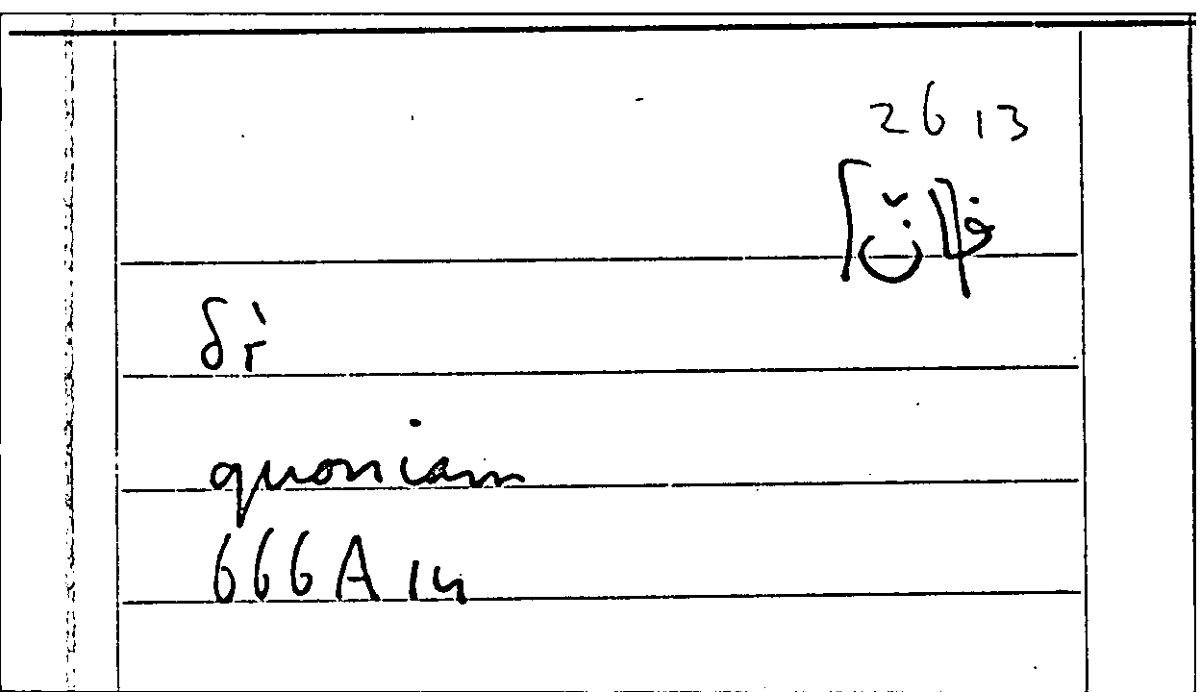 2613
ف[انّ]
quoniam
666A14